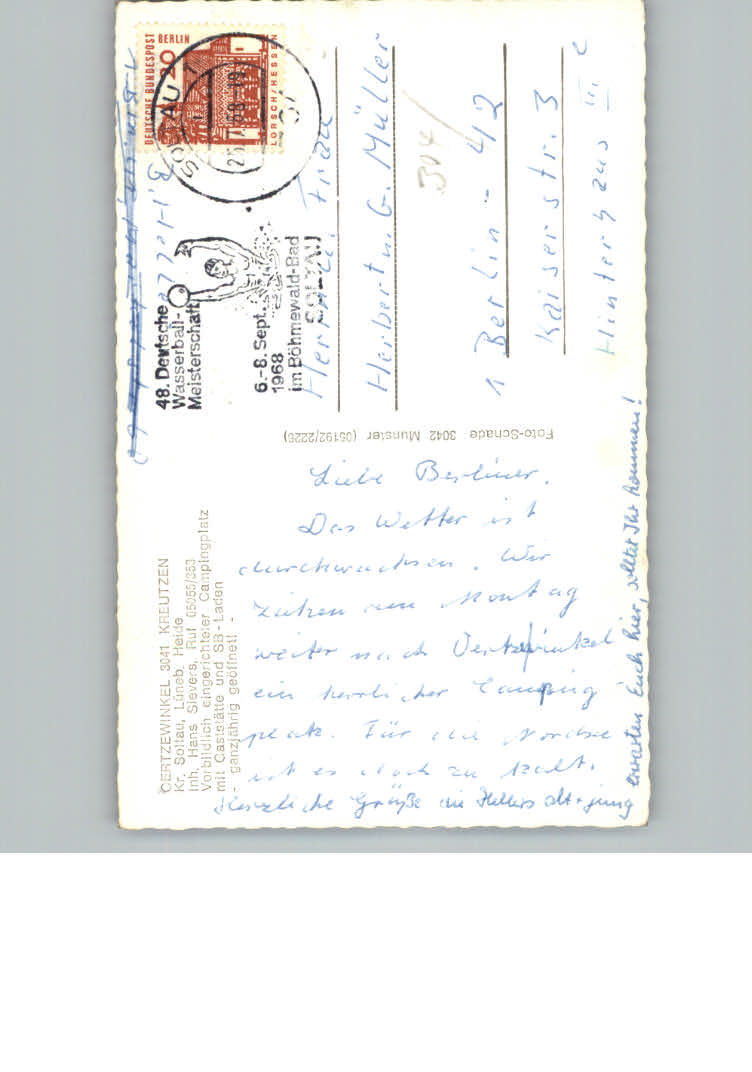 OERTZEWINKEL 3041 KREUTZEN
Kr. Soltau, Lüneb. Heide
Inh. Hans Sievers, Ruf 05055/353
Vorbildlich eingerichteter Campingplatz
mit Gaststätte und SB-Laden
- ganzjährig geöffnet! -
Liebe Berliner,
Das Wetter ist
durchwachsen. Wir
ziehen am Montag
weiter nach Oertzewinkel
ein herrlicher Camping-
platz. Für die Nordsee
ist es doch zu kalt.
Herzliche Grüße die Hellers alt + jung
erwarten Euch hier, solltet Ihr kommen!
Foto-Schade 3042 Munster (05192/2226)
DEUTSCHE BUNDESPOST BERLIN
20
LORSCH/HESSEN
SOLTAU 1
48. Deutsche
Wasserball-
Meisterschaft
6.-8. Sept.
1968
im Böhmewald-Bad
SOLTAU
Herrn u. Frau
Herbert u. G. Müller
304/
1 Berlin - 42
Kaiserstr. 3
Hinterhaus III